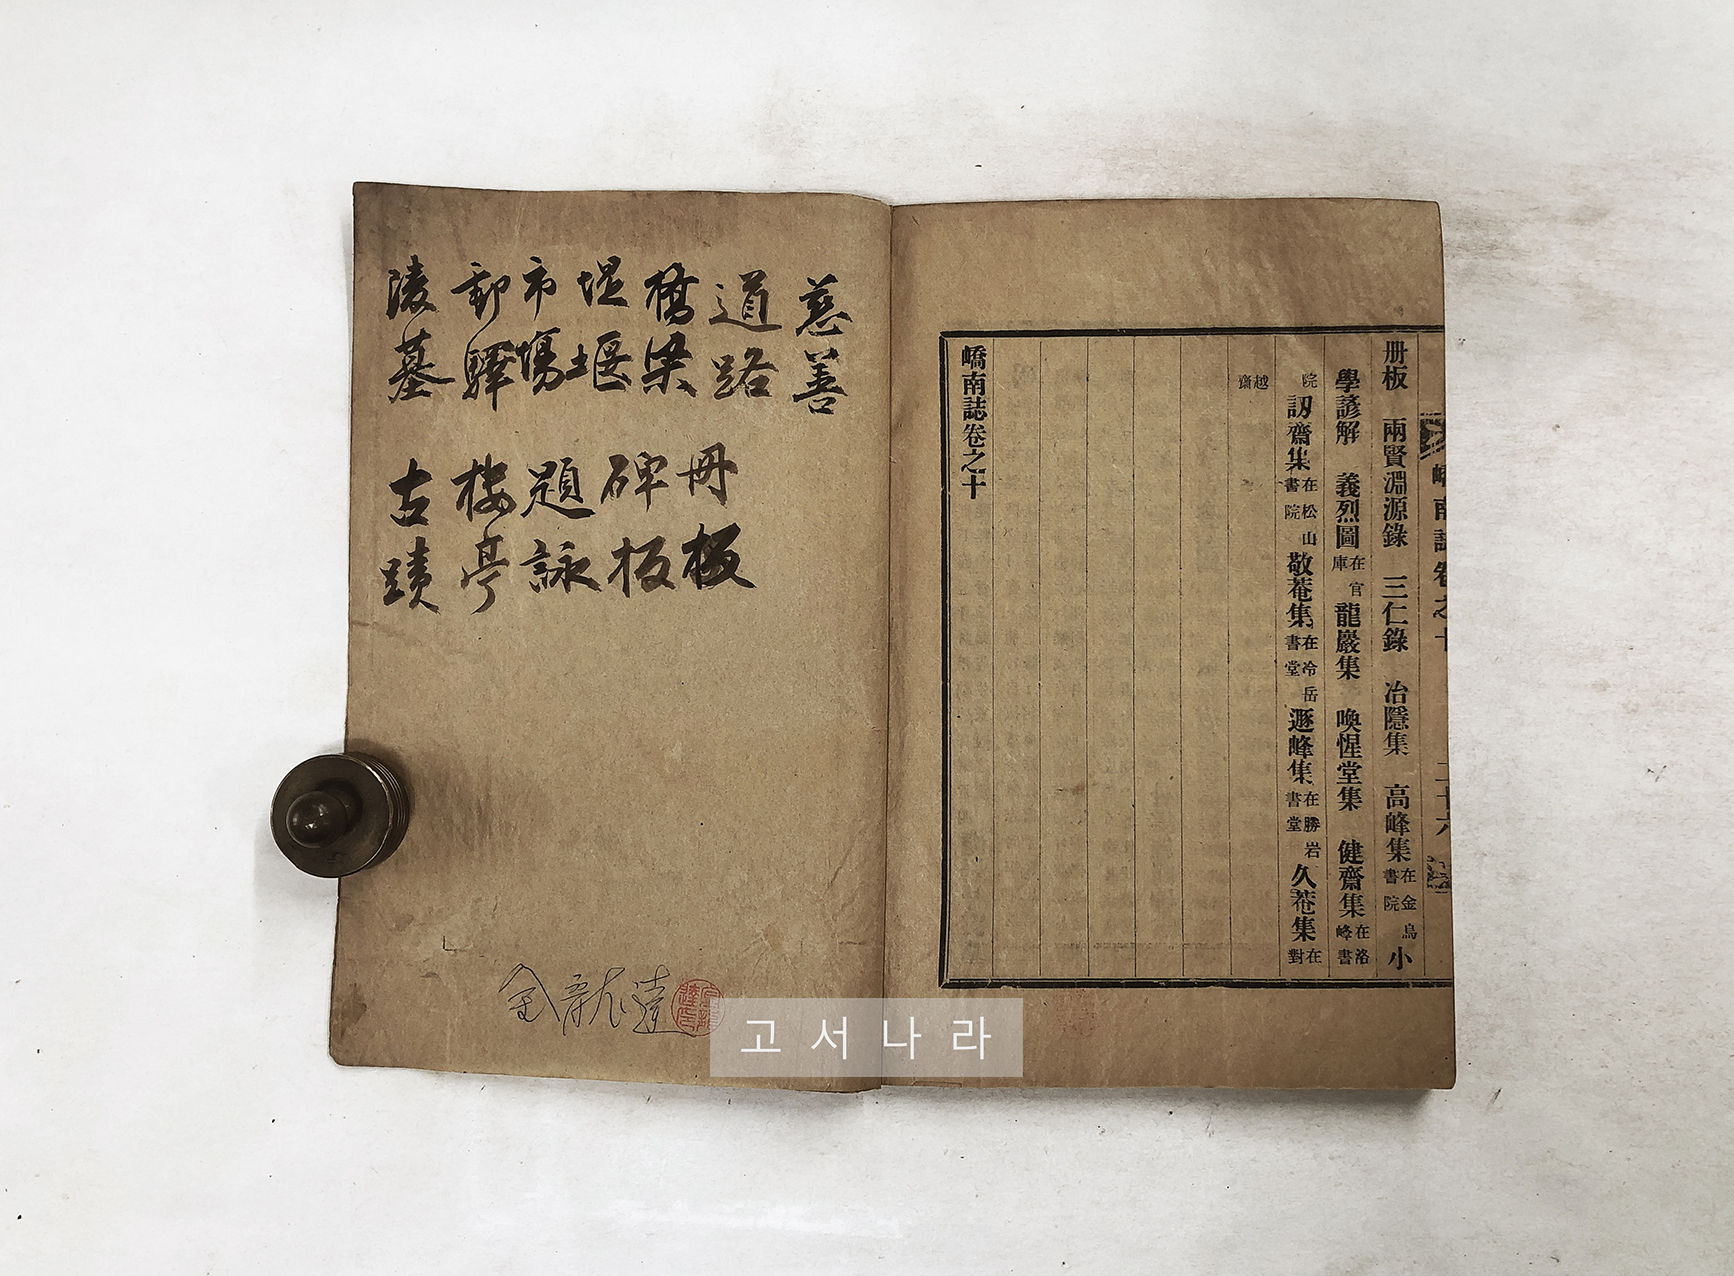 嶠南誌卷之十 二十六
册板 兩賢淵源錄 三仁錄 冶隱集 高峰集 在金烏書院 小
學諺解 義烈圖 在官庫 龍巖集 喚惺堂集 健齋集 在洛峰書
院 訒齋集 在松山書院 敬菴集 在冷岳書堂 遯峰集 在勝岩書堂 久菴集 在對
越齋
嶠南誌卷之十
慈善
道路
橋梁
堤堰
市場
郵驛
陵墓
冊板
碑板
題詠
樓亭
古蹟
고서나라